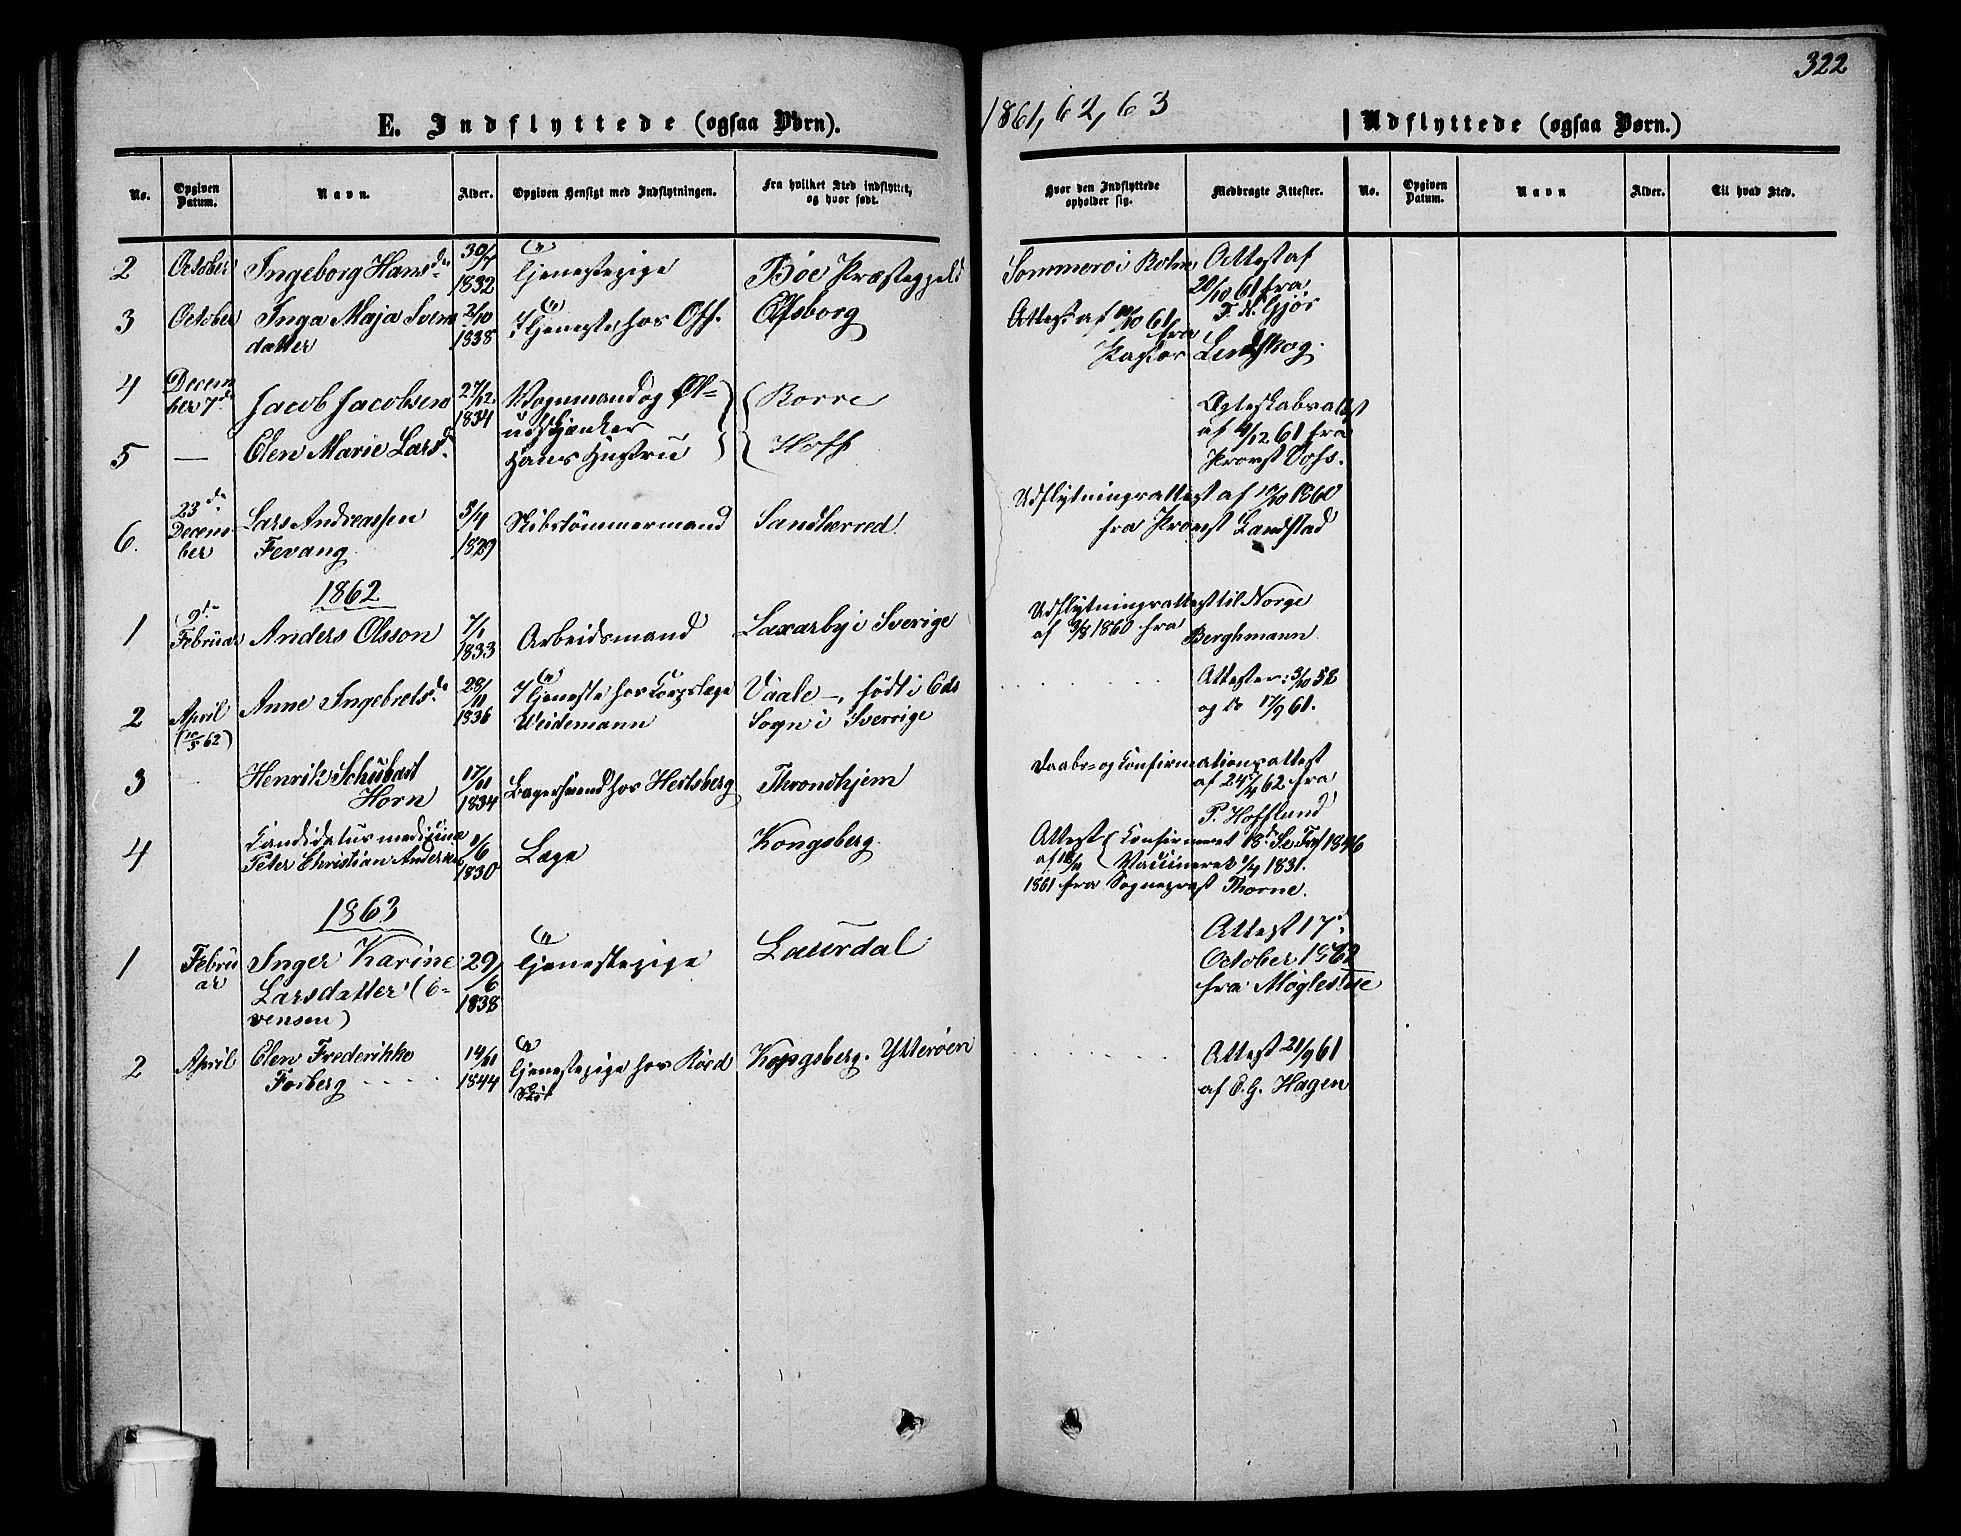 322
1861, 62, 63
E. Indflyttede (ogsaa Børn).
Udflyttede (ogsaa Børn.)
No.
Opgiven Datum.
Navn.
Alder.
Opgiven Hensigt med Indflytningen.
Fra hvilket Sted indflyttet, og hvor født.
Hvor den Indflyttede opholder sig.
Medbragte Attester.
No.
Opgiven Datum.
Navn
Alder.
Til hvad Sted.
2 October Ingeborg Hansdr 30/7 1832 Tjenestepige Bøe Præstegjeld
Attest af
20/10 61 fra
3 October Inga Maja Svens
datter 2/10 1838 I Tjeneste hos Off. Elfsborg
Attest af 10/10 61 fra
Pastor Lendskog.
4 Decem
ber 7de Jacob Jacobsen 27/12 1834 Vognmand og Øl-
udskjænker Borre
Ægteskabsattest
af 4/12 61 fra
5 — Elen Marie Larsd. Hans Hustru Hoff
Provst
6. 23de
Decem
ber Lars Andreassen
Fevang 5/4 1829 Skibstømmermand Sandherred
Udflytningsattest af 10/10 1860
fra Provst Landstad
1862
1 9de
Februar Anders Olsson 7/1 1833 Arbeidsmand Laxarby i Sverige
Udflytningsattest til Norge
af 9/8 1860 fra
Berghmann
2 April
(10/5 62) Anne Ingebretsd. 28/11 1836 I Tjeneste hos Corpslæge
Weidemann Vaale —, født i Eds
Sogn i Sverrige
Attester: 3/10 52
og do 17/9 61.
3 — Henrik Schubart
Horn 17/11 1834 Bagersvend hos Hertsberg Throndhjem
Daabs- og Confirmationsattest
af 24/4 62 fra
P. Hofflund
4 Candidatus medicinæ
Peter Christian Andersen 1/6 1830 Læge Kongsberg
Attest
1861 fra Sogneprest Thorne.
Confirmeret 18de S. e. Tr. 1846
Vaccineret 1/4 1831.
1863
1 Febru
ar Inger Karine
Larsdatter (E-
vensen) 29/6 1838 Tjenestepige Laurdal
Attest 17d
October 1862
fra Møglestue
2 April Elen Frederikke
Forberg 14/11 1844 Tjenestepige hos Kongsberg. Ytterøen
Attest 21/9 61
af C. G. Hagen